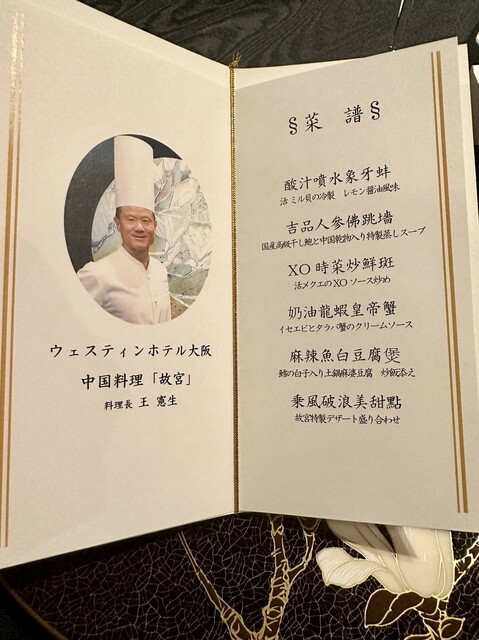 ウェスティンホテル大阪
中国料理「故宮」
料理長 王 憲生
§菜 譜§
酸汁噴水象牙蚌
活ミル貝の冷製 レモン醤油風味
吉品人參佛跳墻
国産高級干し鮑と中国乾物入り特製蒸しスープ
XO時菜炒鮮斑
活メクエのXOソース炒め
奶油龍蝦皇帝蟹
イセエビとタラバ蟹のクリームソース
麻辣魚白豆腐煲
鱈の白子入り土鍋麻婆豆腐 炒飯添え
乘風破浪美甜點
故宮特製デザート盛り合わせ